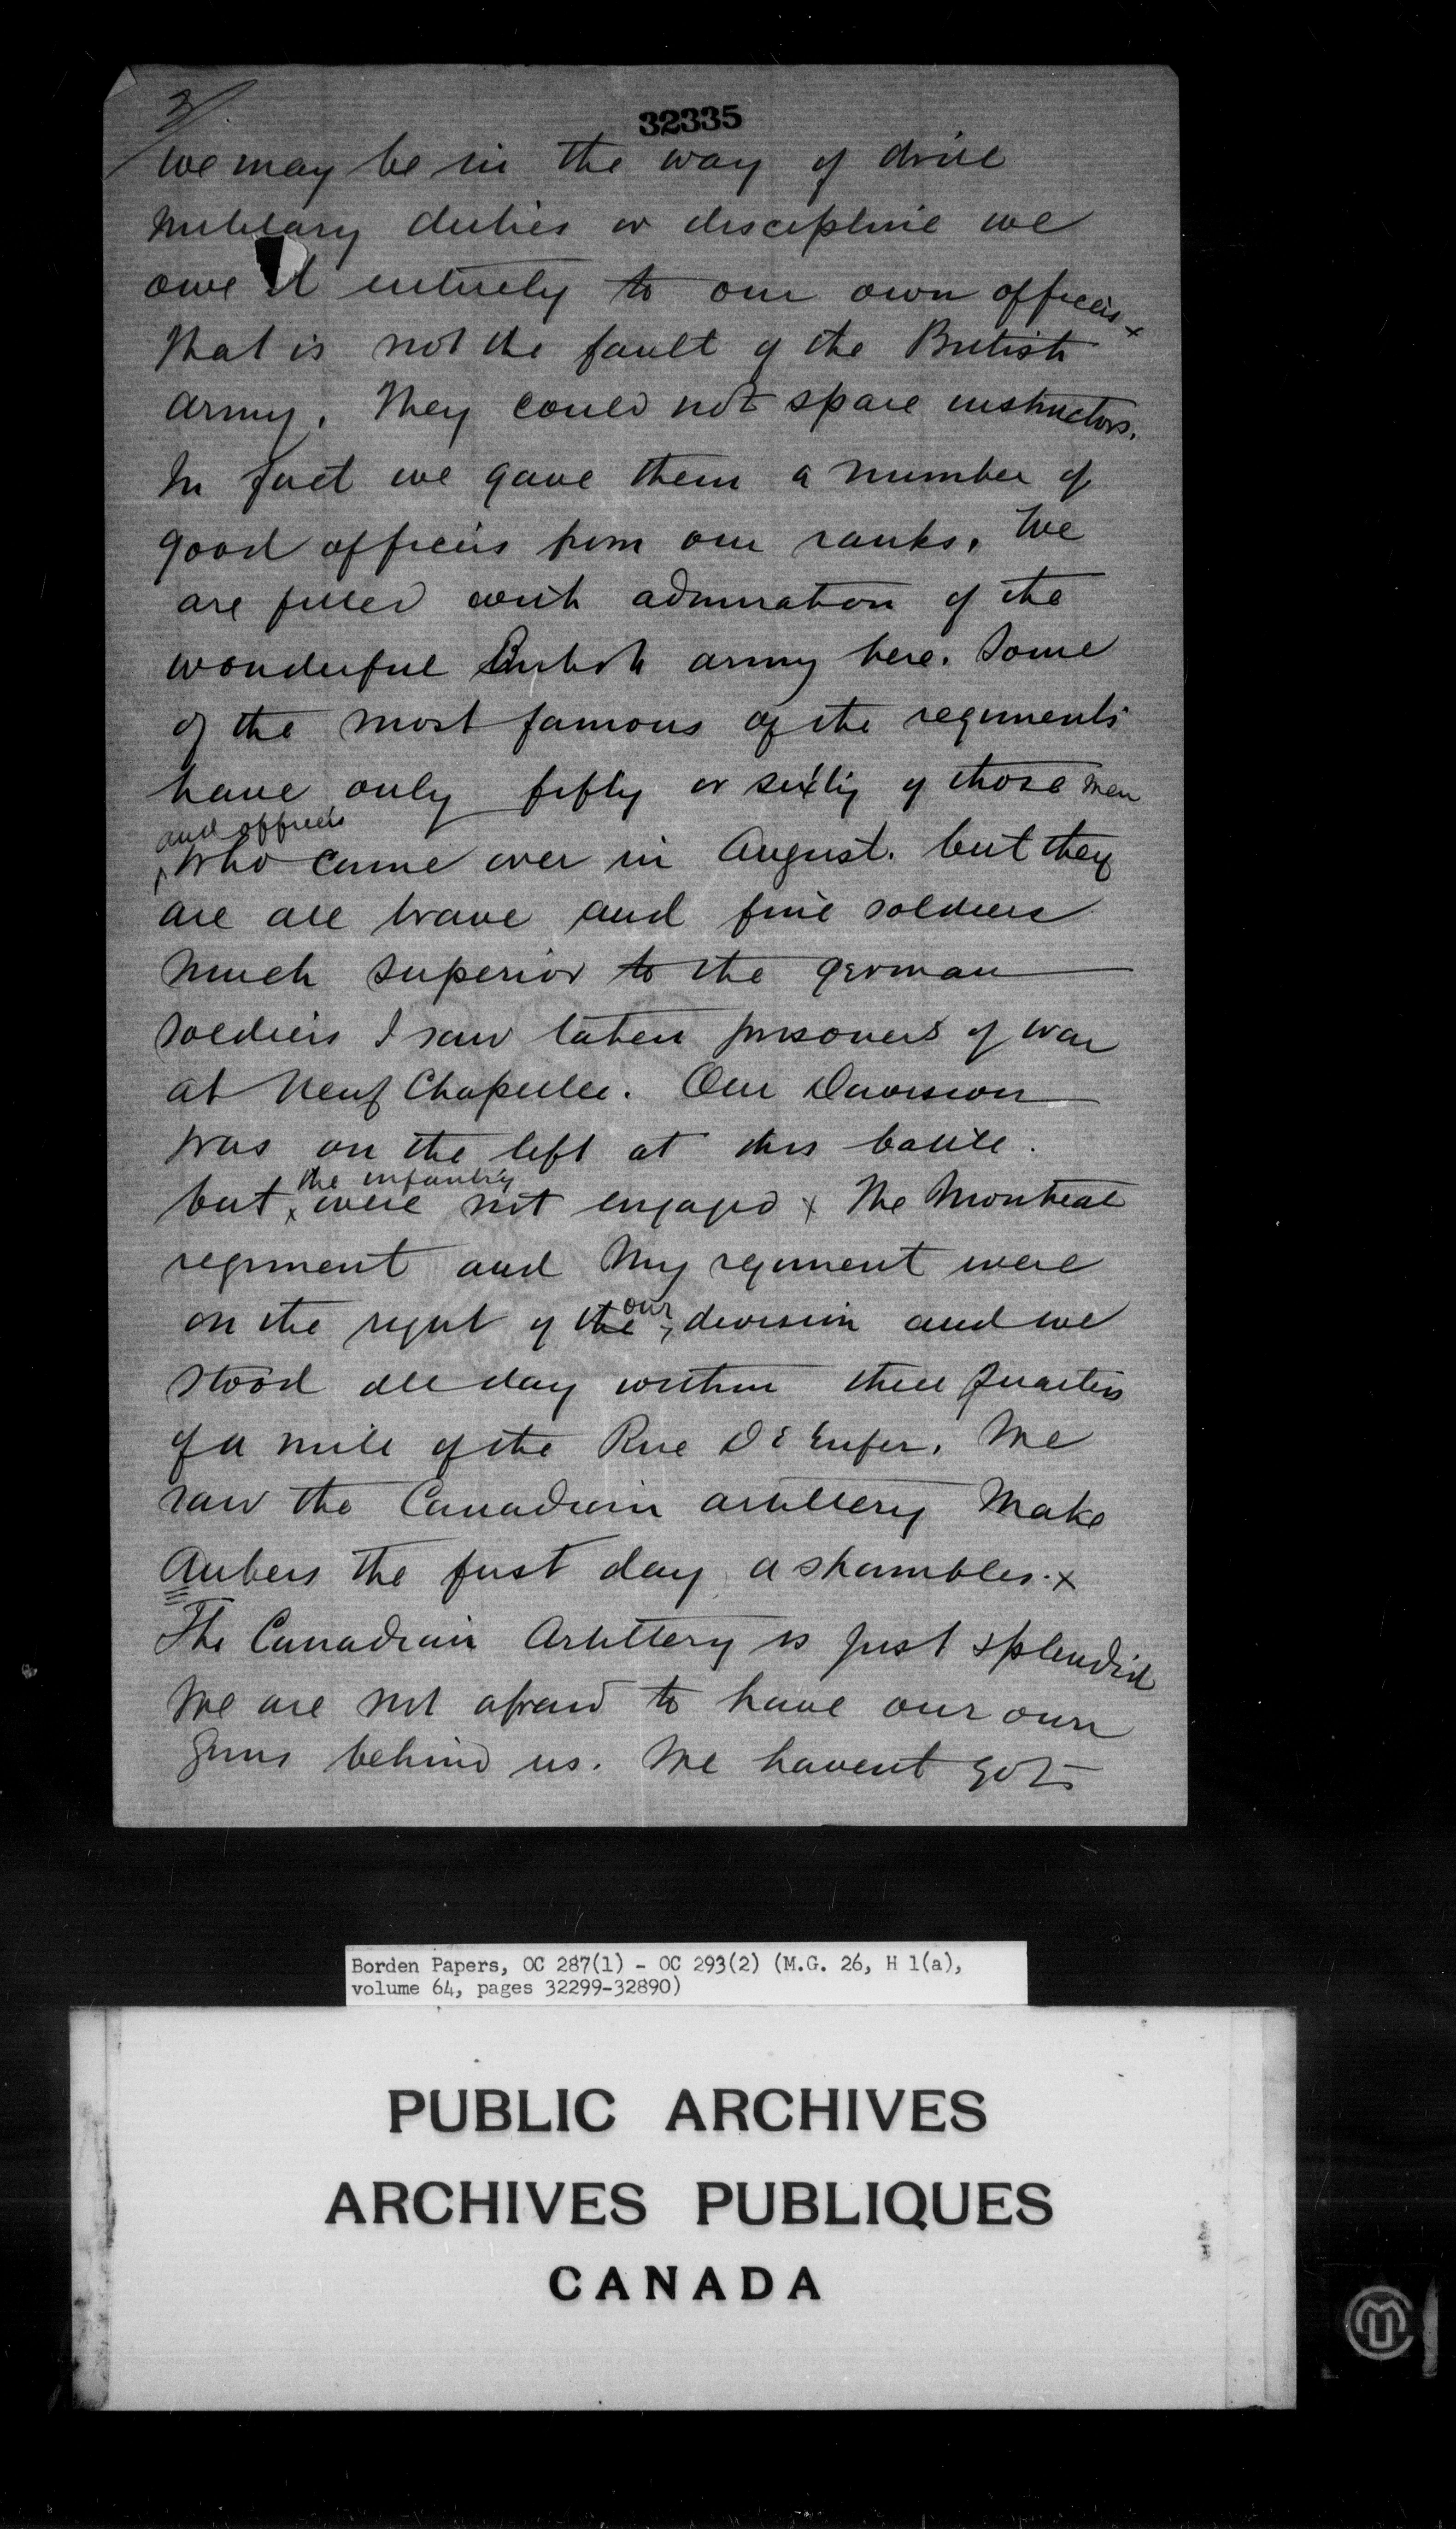 3/
32335
we may be in the way of drill
military duties or discipline we
owe it entirely to our own officers x
That is not the fault of the British
army. They could not spare instructors.
In fact we gave them a number of
good officers from our ranks. We
are filled with admiration of the
wonderful British army here. Some
of the most famous of the regiments
have only fifty or sixty of those men
and officers
who came over in August. but they
are all brave and fine soldiers
much superior to the german
soldiers I saw taken prisoners of war
at Neuf Chapelle. Our Division
was on the left at this battle.
the infantry
but were not engaged x The Montreal
regiment and my regiment were
our
on the right of the division and we
stood all day within three quarters
of a mile of the Rue DE Enfer. We
saw the Canadian artillery make
Aubers the first day a shambles. x
The Canadian Artillery is just splendid
We are not afraid to have our own
guns behind us. We havent got
Borden Papers, OC 287(1) - OC 293(2) (M.G. 26, H 1(a),
volume 64, pages 32299-32890)
PUBLIC ARCHIVES
ARCHIVES PUBLIQUES
CANADA